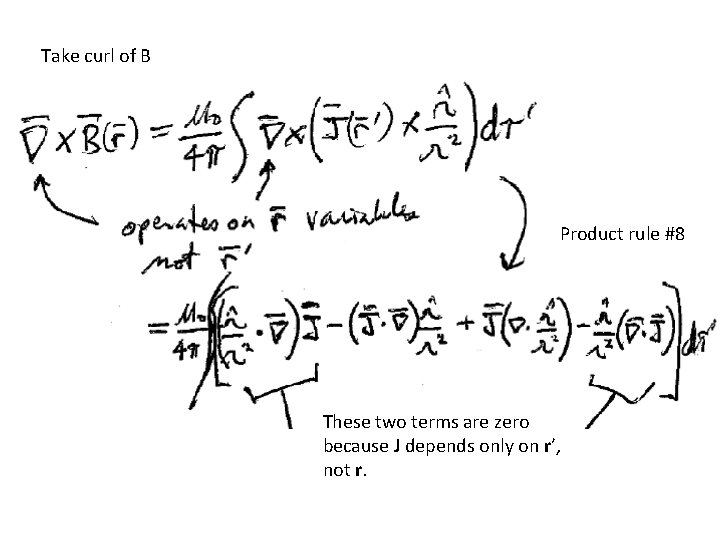 Take curl of B
∇̄ × B̄(r̄) = μ₀/4π ∫ ∇̄ × (J̄(r̄') × r̂/r²) dτ'
operates on r̄ variables
not r̄'
Product rule #8
= μ₀/4π ∫ [(r̂/r² · ∇̄) J̄ − (J̄ · ∇̄) r̂/r² + J̄ (∇ · r̂/r²) − r̂/r² (∇̄ · J̄)] dτ'
These two terms are zero
because J depends only on r’,
not r.